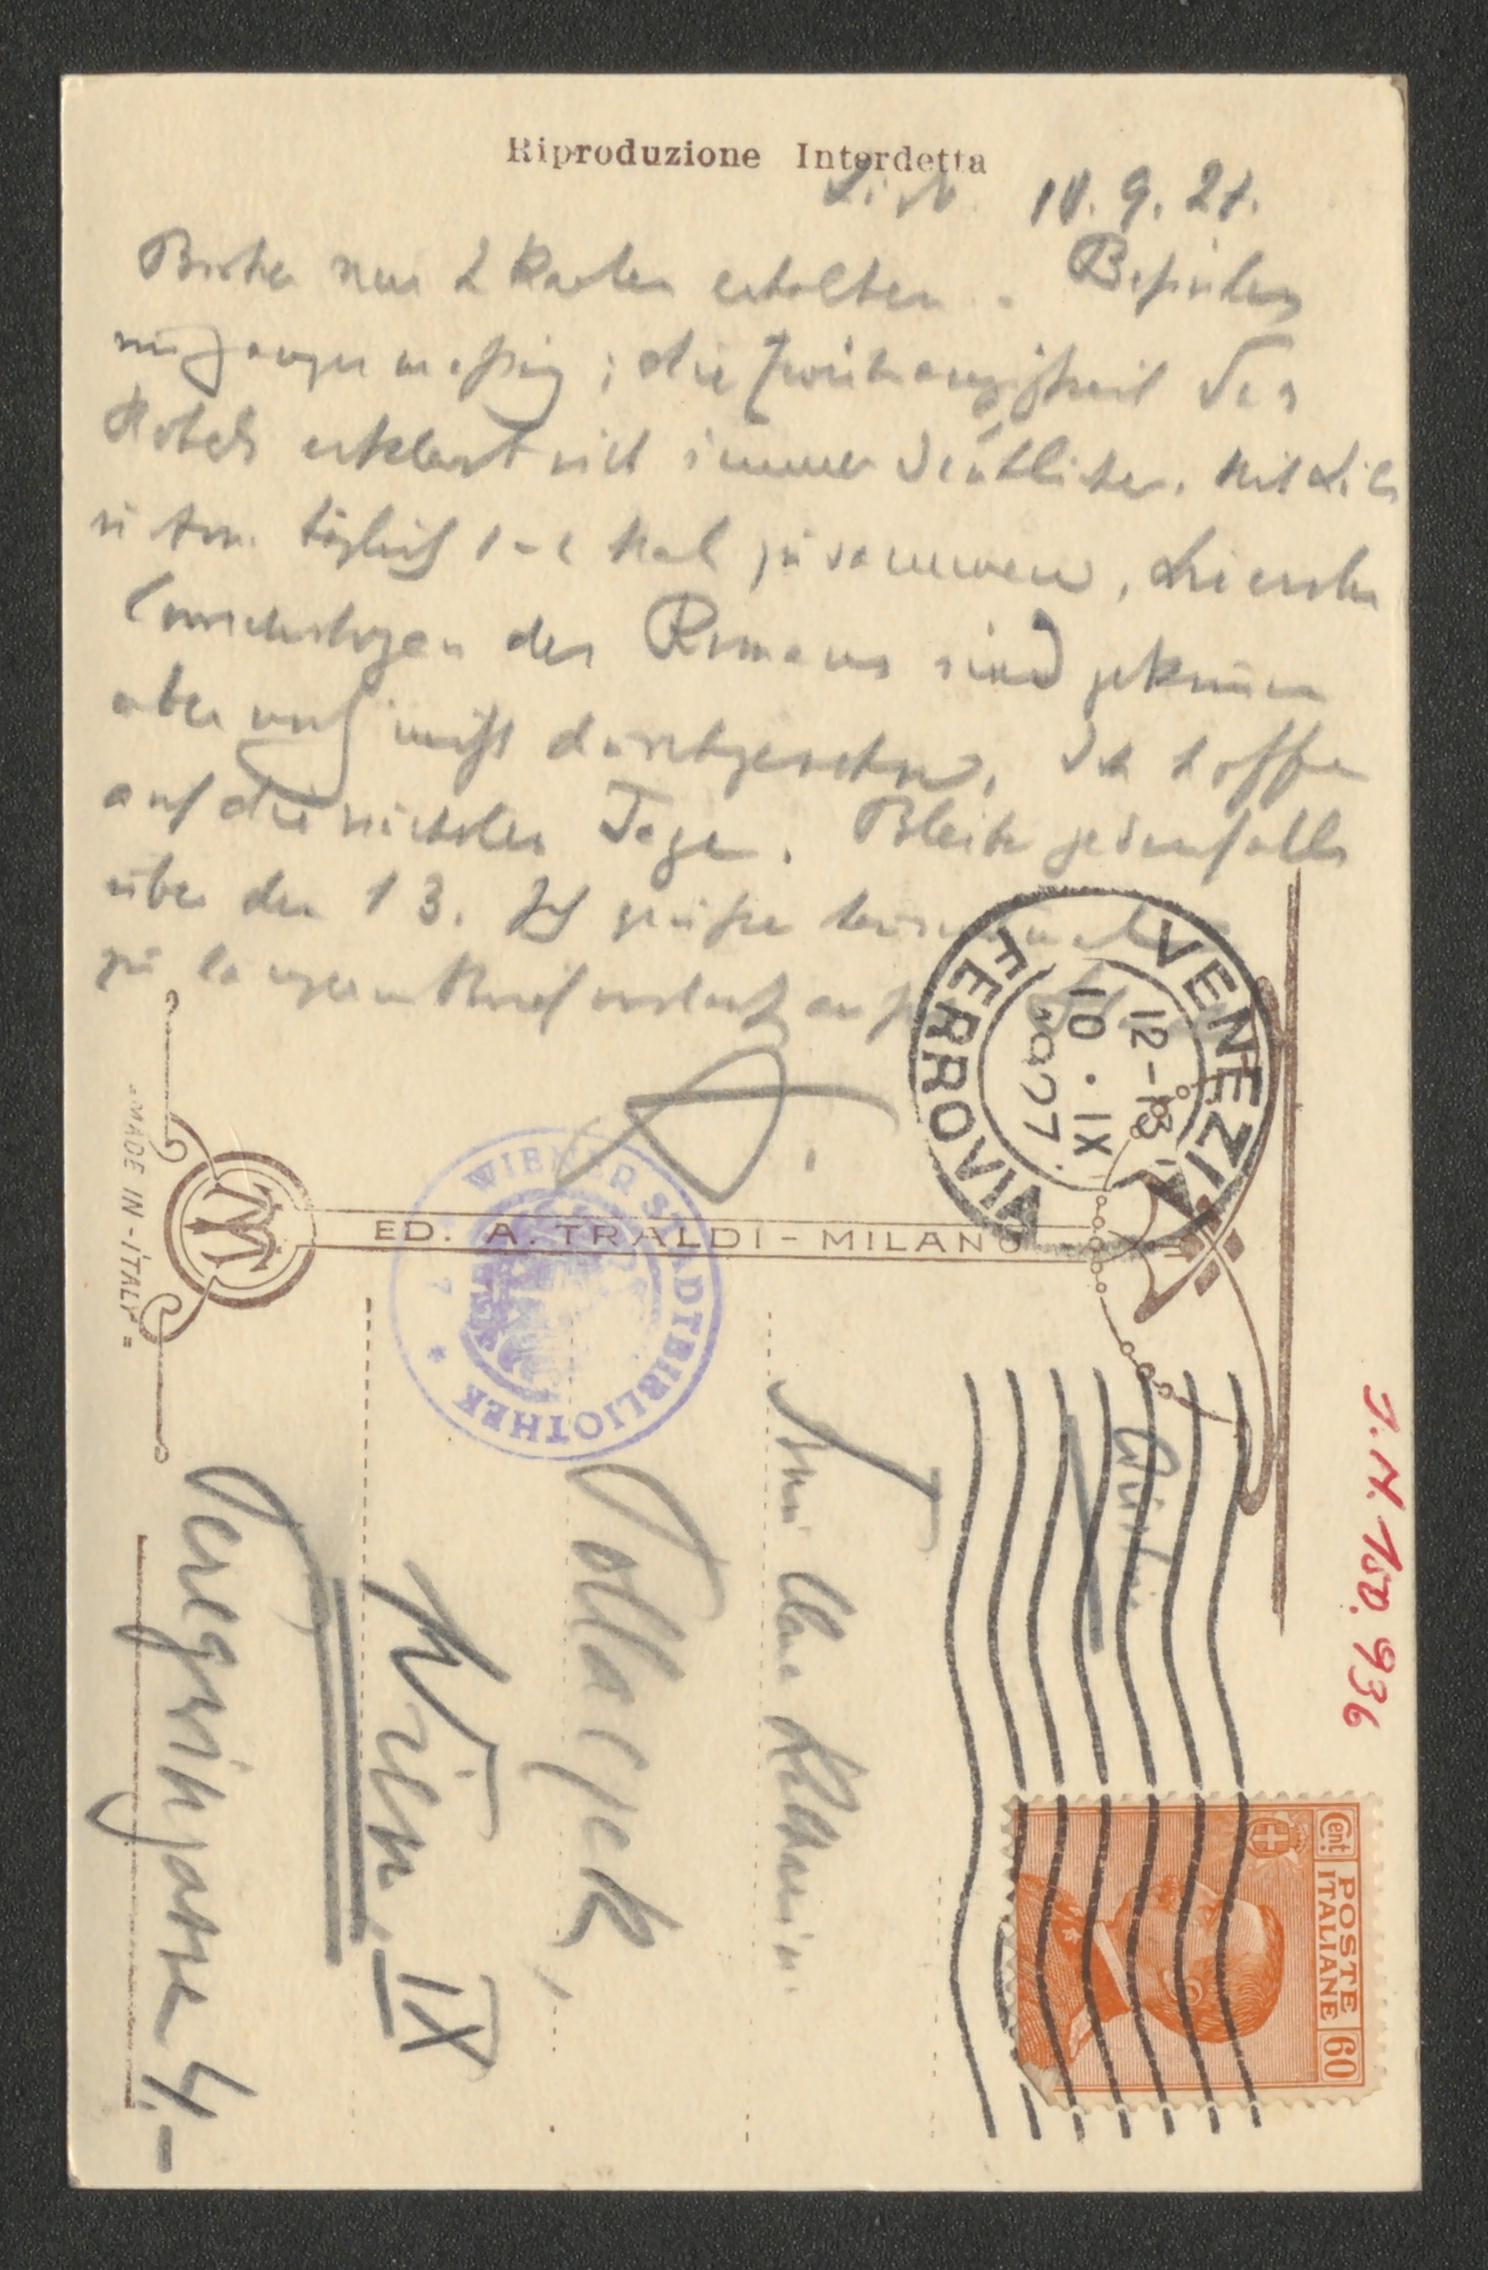 Riprodu­zione Interdetta
Lido 10. 9. 27.
Bisher nur 2 Karten erhalten. Befinden
mäßig; die des
Hotels erklärt sich immer deutlicher. Mit Lili
u Arn. täglich 1-2 Mal zusammen, die ersten
Correcturbogen des Romans sind gekommen
aber noch nicht durchgesehen. Ich hoffe
auf die nächsten Tage. Bleibe jedenfalls
über den 13. Ich grüße
zu langem
A.
VENEZIA
FERROVIA
12-13
10 · IX
1927
MADE IN - ITALY
M
ED. A. TRALDI - MILANO
WIENER STADTBIBLIOTHEK
Frau Clara Katharina
Pollaczek,
Wien, IX
Peregringasse 4.-
J. N. 150.936
Cent. POSTE ITALIANE 60